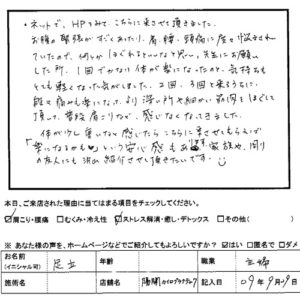 ・ネットで、HPをみて、こちらに来させて頂きました。
お腹の緊張がずくあったり、肩、腰、頭痛に度々悩まされ
ていたので、何とかほぐれるといいなと思い、先生にお願い
した所、1回でかなり体が楽になったのと、気持ちも
とても軽くなった気がしました。2回、3回と来るうちに、
段々痛みも楽になって、より深い所や細かい筋肉をほぐして
頂いて、普段肩こりなど、感じなくなってきました。
体が少し重いなと感じたらこちらに来させてもらえば
"楽になるかも♡という安心感もあります。家族や、周り
の友人にも沢山紹介させて頂きたいです。
本日、ご来店された理由に当てはまる項目をチェックしてください。
☑肩こり・腰痛 □むくみ・冷え性 ☑ストレス解消・癒し・デトックス □その他( )
※ あなた様の声を、ホームページなどでご紹介してもよろしいですか? ☑はい □匿名で □ダメ
お名前(イニシャル可) 足立 年齢 職業 主婦
施術名 店舗名 陽開カイロプラクティック 記入日 09年9月19日